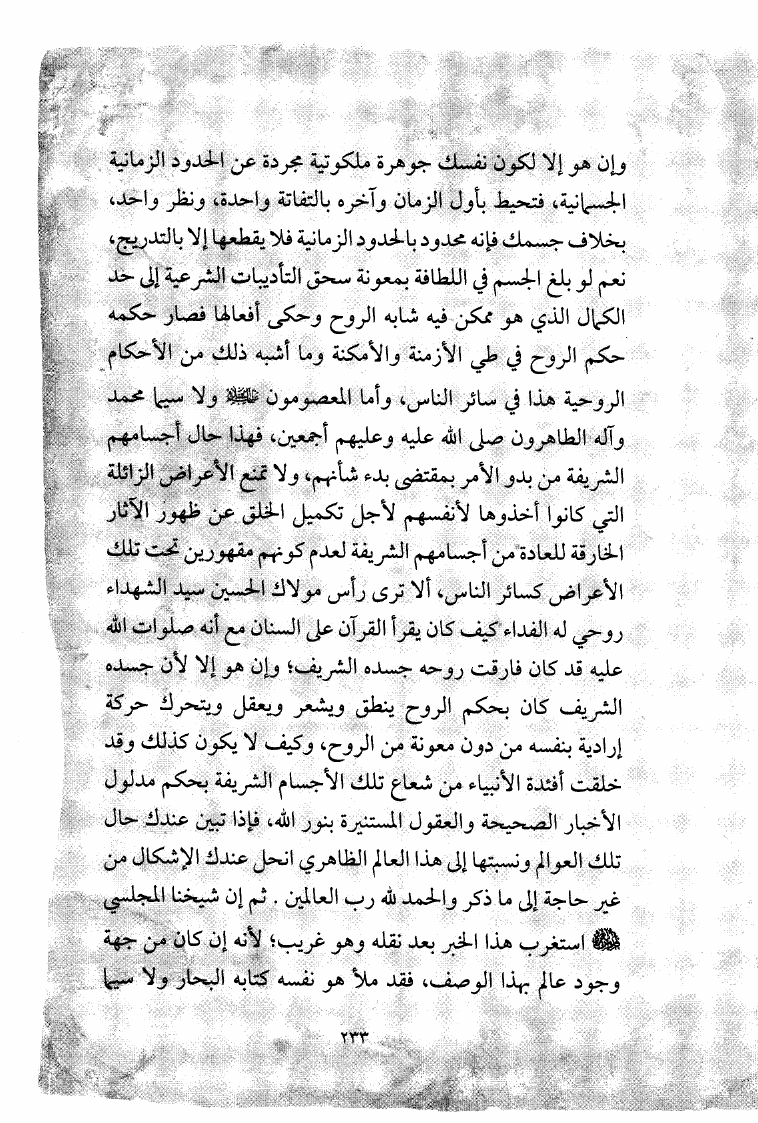 وإن هو إلا لكون نفسك جوهرة ملكوتية مجردة عن الحدود الزمانية
الجسمانية، فتحيط بأول الزمان وآخره بالتفاتة واحدة، ونظر واحد،
بخلاف جسمك فإنه محدود بالحدود الزمانية فلا يقطعها إلا بالتدريج،
نعم لو بلغ الجسم في اللطافة بمعونة سحق التأديبات الشرعية إلى حد
الكمال الذي هو ممكن فيه شابه الروح وحكى أفعالها فصار حكمه
حكم الروح في طي الأزمنة والأمكنة وما أشبه ذلك من الأحكام
الروحية هذا في سائر الناس، وأما المعصومون ولا سيما محمد
وآله الطاهرون صلى الله عليه وعليهم أجمعين، فهذا حال أجسامهم
الشريفة من بدو الأمر بمقتضى بدء شأنهم، ولا تمنع الأعراض الزائلة
التي كانوا أخذوها لأنفسهم لأجل تكميل الخلق عن ظهور الآثار
الخارقة للعادة من أجسامهم الشريفة لعدم كونهم مقهورين تحت تلك
الأعراض كسائر الناس، ألا ترى رأس مولاك الحسين سيد الشهداء
روحي له الفداء كيف كان يقرأ القرآن على السنان مع أنه صلوات الله
عليه قد كان فارقت روحه جسده الشريف؛ وإن هو إلا لأن جسده
الشريف كان بحكم الروح ينطق ويشعر ويعقل ويتحرك حركة
إرادية بنفسه من دون معونة من الروح، وكيف لا يكون كذلك وقد
خلقت أفئدة الأنبياء من شعاع تلك الأجسام الشريفة بحكم مدلول
الأخبار الصحيحة والعقول المستنيرة بنور الله، فإذا تبين عندك حال
تلك العوالم ونسبتها إلى هذا العالم الظاهري انحل عندك الإشكال من
غير حاجة إلى ما ذكر والحمد لله رب العالمين . ثم إن شيخنا المجلسي
استغرب هذا الخبر بعد نقله وهو غريب؛ لأنه إن كان من جهة
وجود عالم بهذا الوصف، فقد ملأ هو نفسه كتابه البحار ولا سيما
٢٣٣